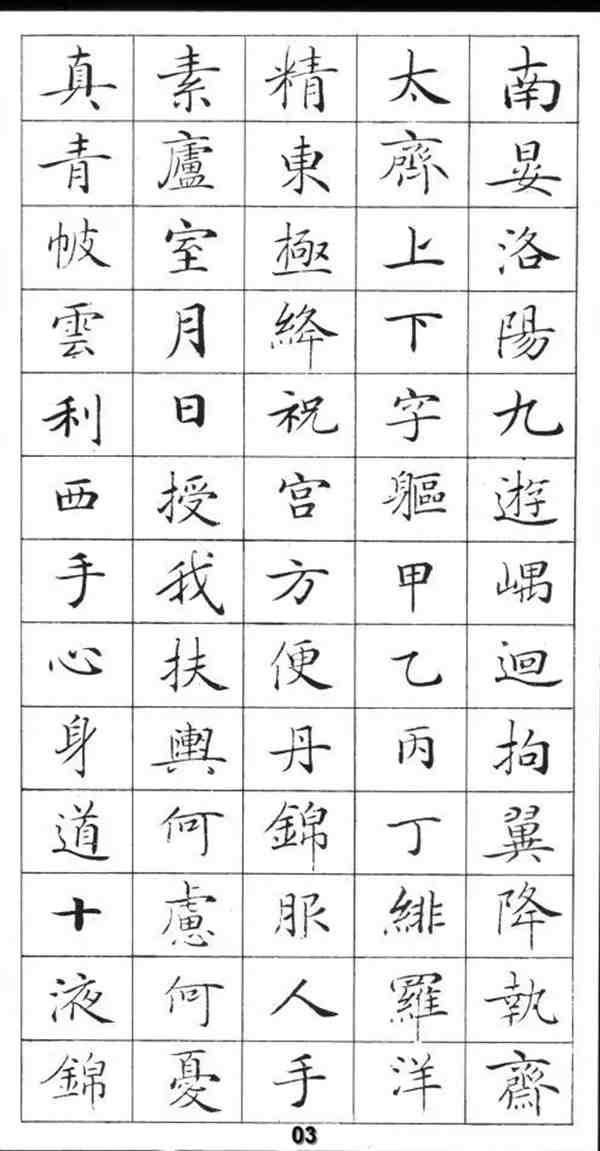 南晏洛陽九遊嵎迴拘翼降執齋
太齊上下字軀甲乙丙丁緋羅洋
精東極絳祝宫方便丹錦服人手
素廬室月日授我扶輿何慮何憂
真青帔雲利西手心身道十液錦
03